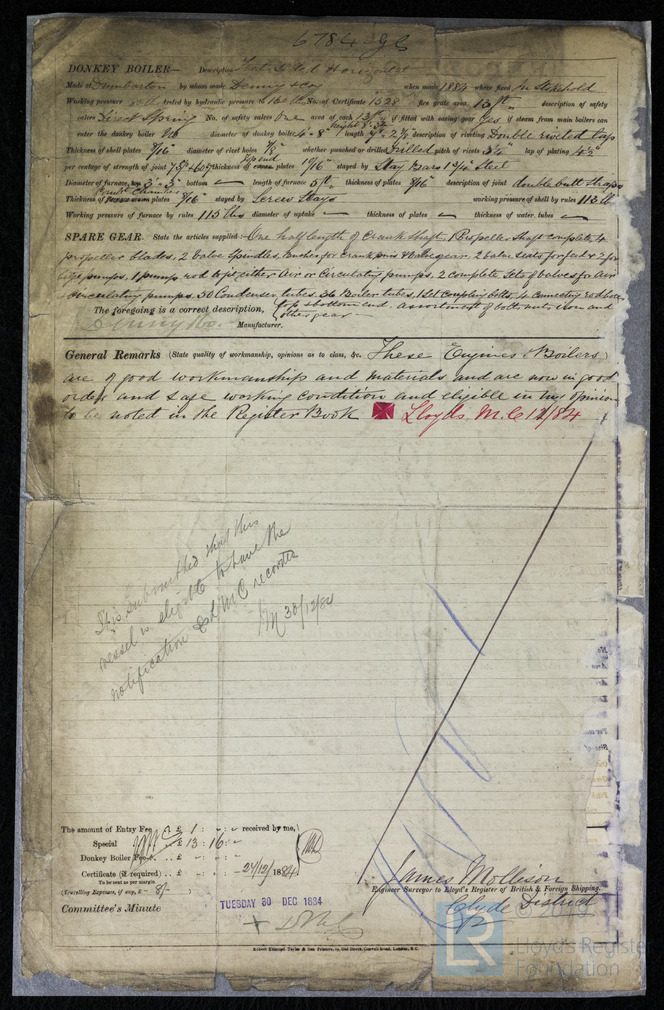 6784 glb
DONKEY BOILER— Description Horizontal
Made at Dumbarton by whom made Denny & Co when made 1884 where fixed In Stokehold
Working pressure tested by hydraulic pressure to No. of Certificate 1528 fire grate area 15 ft description of safety
valves Direct Spring No. of safety valves One area of each if fitted with easing gear Yes if steam from main boilers can
enter the donkey boiler No diameter of donkey boiler 4-8 length description of riveting Double riveted lap
Thickness of shell plates 9/16 diameter of rivet holes 7/8 whether punched or drilled Drilled pitch of rivets 3 1/4 lap of plating 4 1/2
per centage of strength of joint thickness of end plates 11/16 stayed by Stay Bars 1 9/16 Steel
Diameter of furnace, top 3'-3" bottom length of furnace 5 ft thickness of plates 9/16 description of joint double butt straps
Thickness of plates 9/16 stayed by Screw Stays working pressure of shell by rules 113 lb
Working pressure of furnace by rules 115 lbs diameter of uptake thickness of plates thickness of water tubes
SPARE GEAR. State the articles supplied:— One half length of Crank Shaft, 1 Propeller Shaft complete, 4
propeller blades, 2 Valve Spindles, Bushes for Crank pins & Valve gear, 2 Valve Seats for feed & 2 for
bilge pumps, 1 pump rod to fit either Air or Circulating pumps, 2 complete sets of valves for Air
& circulating pumps, 50 Condenser tubes, 36 Boiler tubes, 1 Set Coupling bolts, 4 Connecting rod bolts
top & bottom end, assortment of bolts nuts iron and
The foregoing is a correct description, other gear
Denny & Co. Manufacturer.
General Remarks (State quality of workmanship, opinions as to class, &c. These Engines & Boilers
are of good workmanship and materials and are now in good
order and safe working condition and eligible in my opinion
to be noted in the Register Book Lloyds M.C 12/84
It is submitted that this
vessel is eligible to have the
notification LMC recorded
M 30/12/84
The amount of Entry Fee .. £ 1 : - : - received by me,
Special £ 13 : 16 : -
Donkey Boiler Fee .. £ - : - : -
Certificate (if required) .. £ - : - : - 29/12/1884
To be sent as per margin
(Travelling Expenses, if any, £ - 8/- )
James Mollison
Engineer Surveyor to Lloyd's Register of British & Foreign Shipping.
Clyde District
Committee's Minute TUESDAY 30 DEC 1884
Lloyd's Register
Foundation